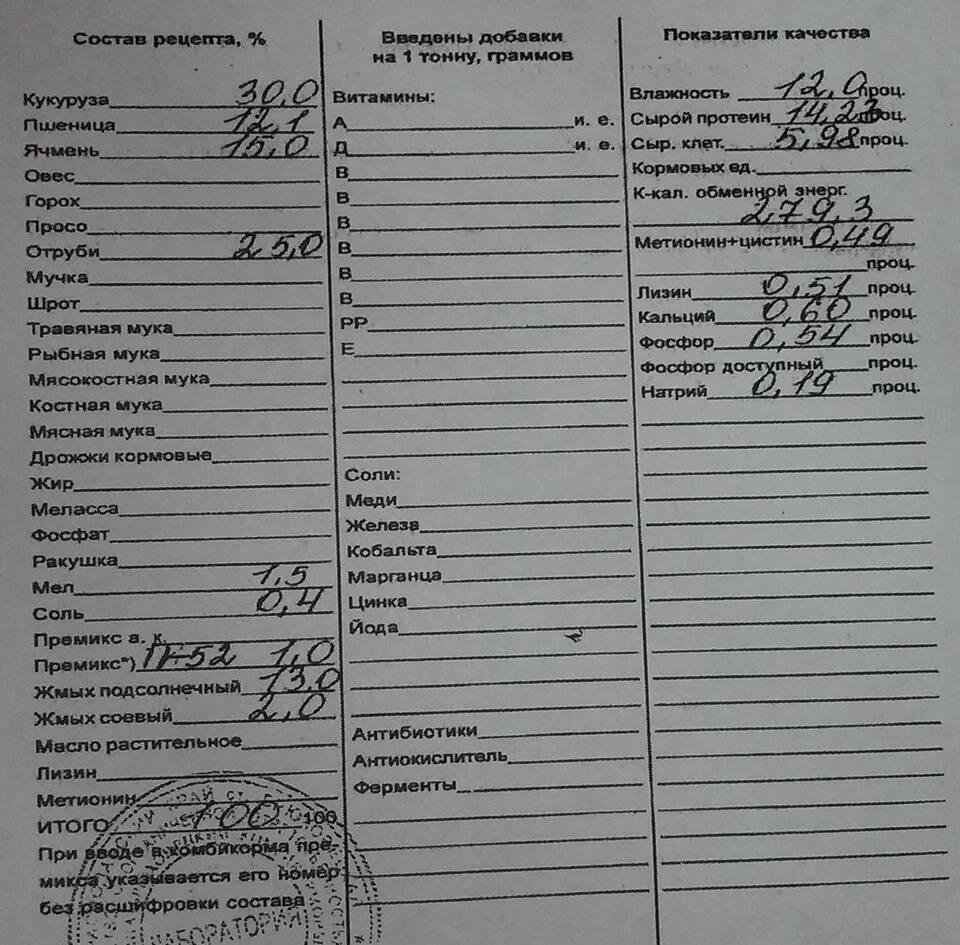 Состав рецепта, %
Кукуруза 30,0
Пшеница 12,1
Ячмень 15,0
Овес
Горох
Просо
Отруби 25,0
Мучка
Шрот
Травяная мука
Рыбная мука
Мясокостная мука
Костная мука
Мясная мука
Дрожжи кормовые
Жир
Меласса
Фосфат
Ракушка
Мел 1,5
Соль 0,4
Премикс а. к.
Премикс*) 52 1,0
Жмых подсолнечный 13,0
Жмых соевый 2,0
Масло растительное
Лизин
Метионин
ИТОГО 100 100
При вводе в комбикорма пре-
микса указывается его номер
без расшифровки состава
ЛАБОРАТОРИЯ
Введены добавки
на 1 тонну, граммов
Витамины:
А и. е.
Д и. е.
В
В
В
В
В
В
РР
Е
Соли:
Меди
Железа
Кобальта
Марганца
Цинка
Йода
Антибиотики
Антиокислитель
Ферменты
Показатели качества
Влажность 12,0 проц.
Сырой протеин 14,23 проц.
Сыр. клет. 5,98 проц.
Кормовых ед.
К-кал. обменной энерг.
279,3
Метионин+цистин 0,49
проц.
Лизин 0,51 проц.
Кальций 0,60 проц.
Фосфор 0,54 проц.
Фосфор доступный проц.
Натрий 0,19 проц.